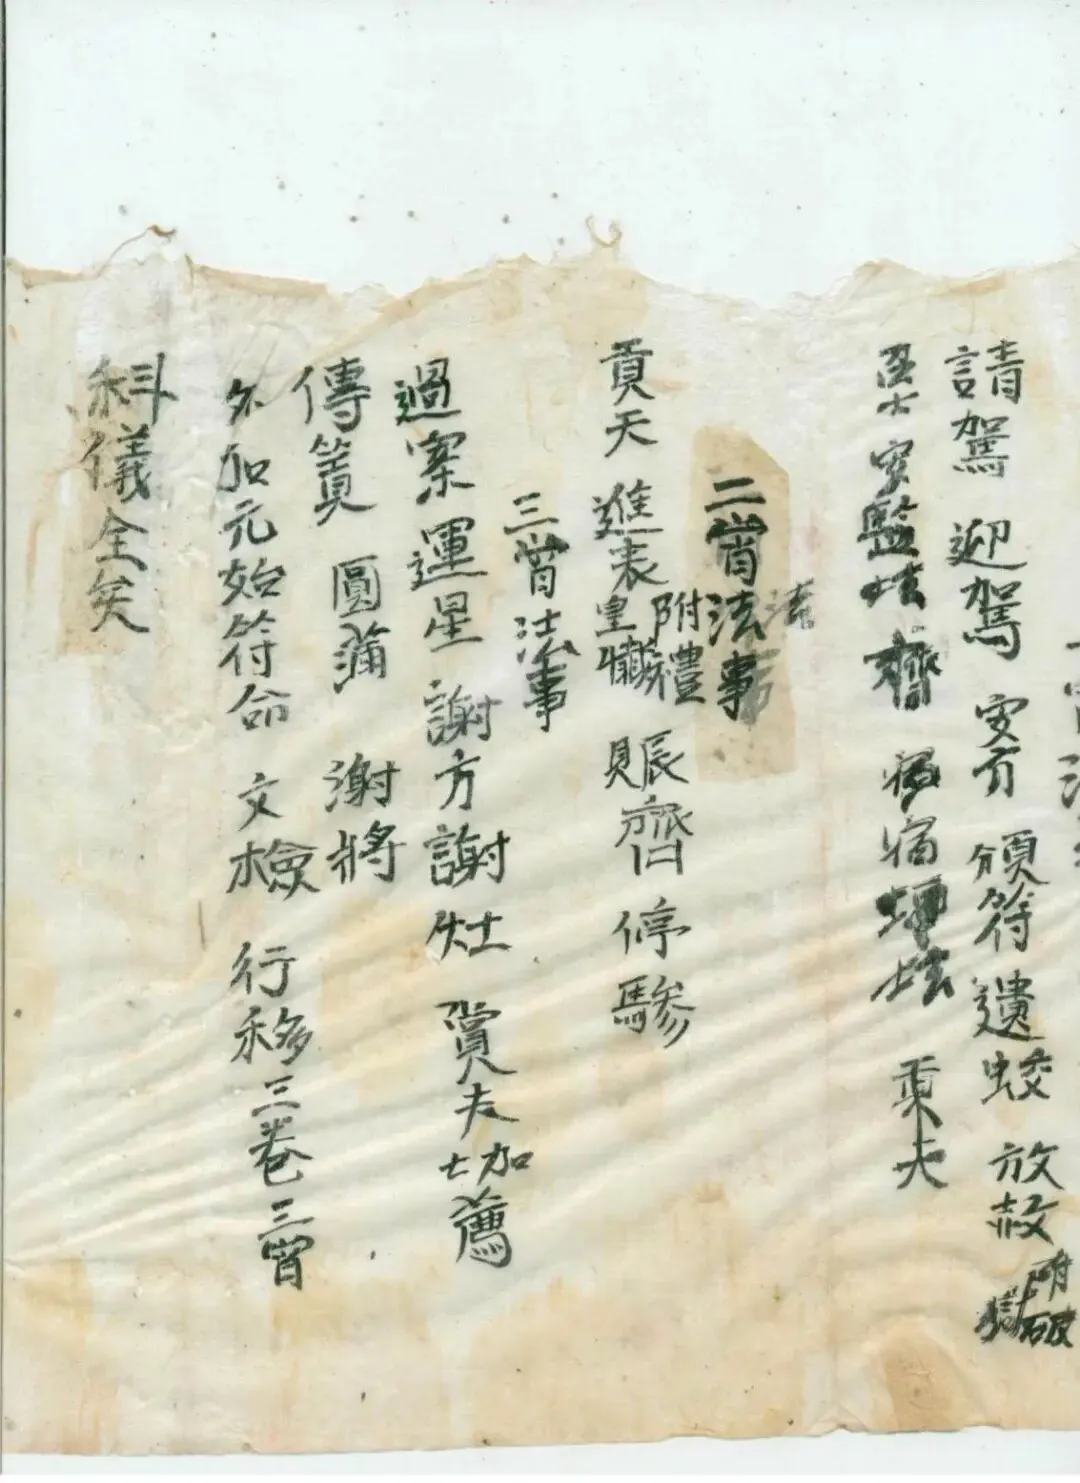 請駕 迎駕 安方 頒符遺蛟 放赦 附破獄
安監 齊 宿 禀天
二宵法事
貢天 進表 附禮皇懺 賑齊 停驂
三宵法事
過案 運星 謝方 謝灶 賞夫 加薦
傳簑 圓蒲 謝將
外加元始符命 文檢 行移三卷三宵
科儀全矣